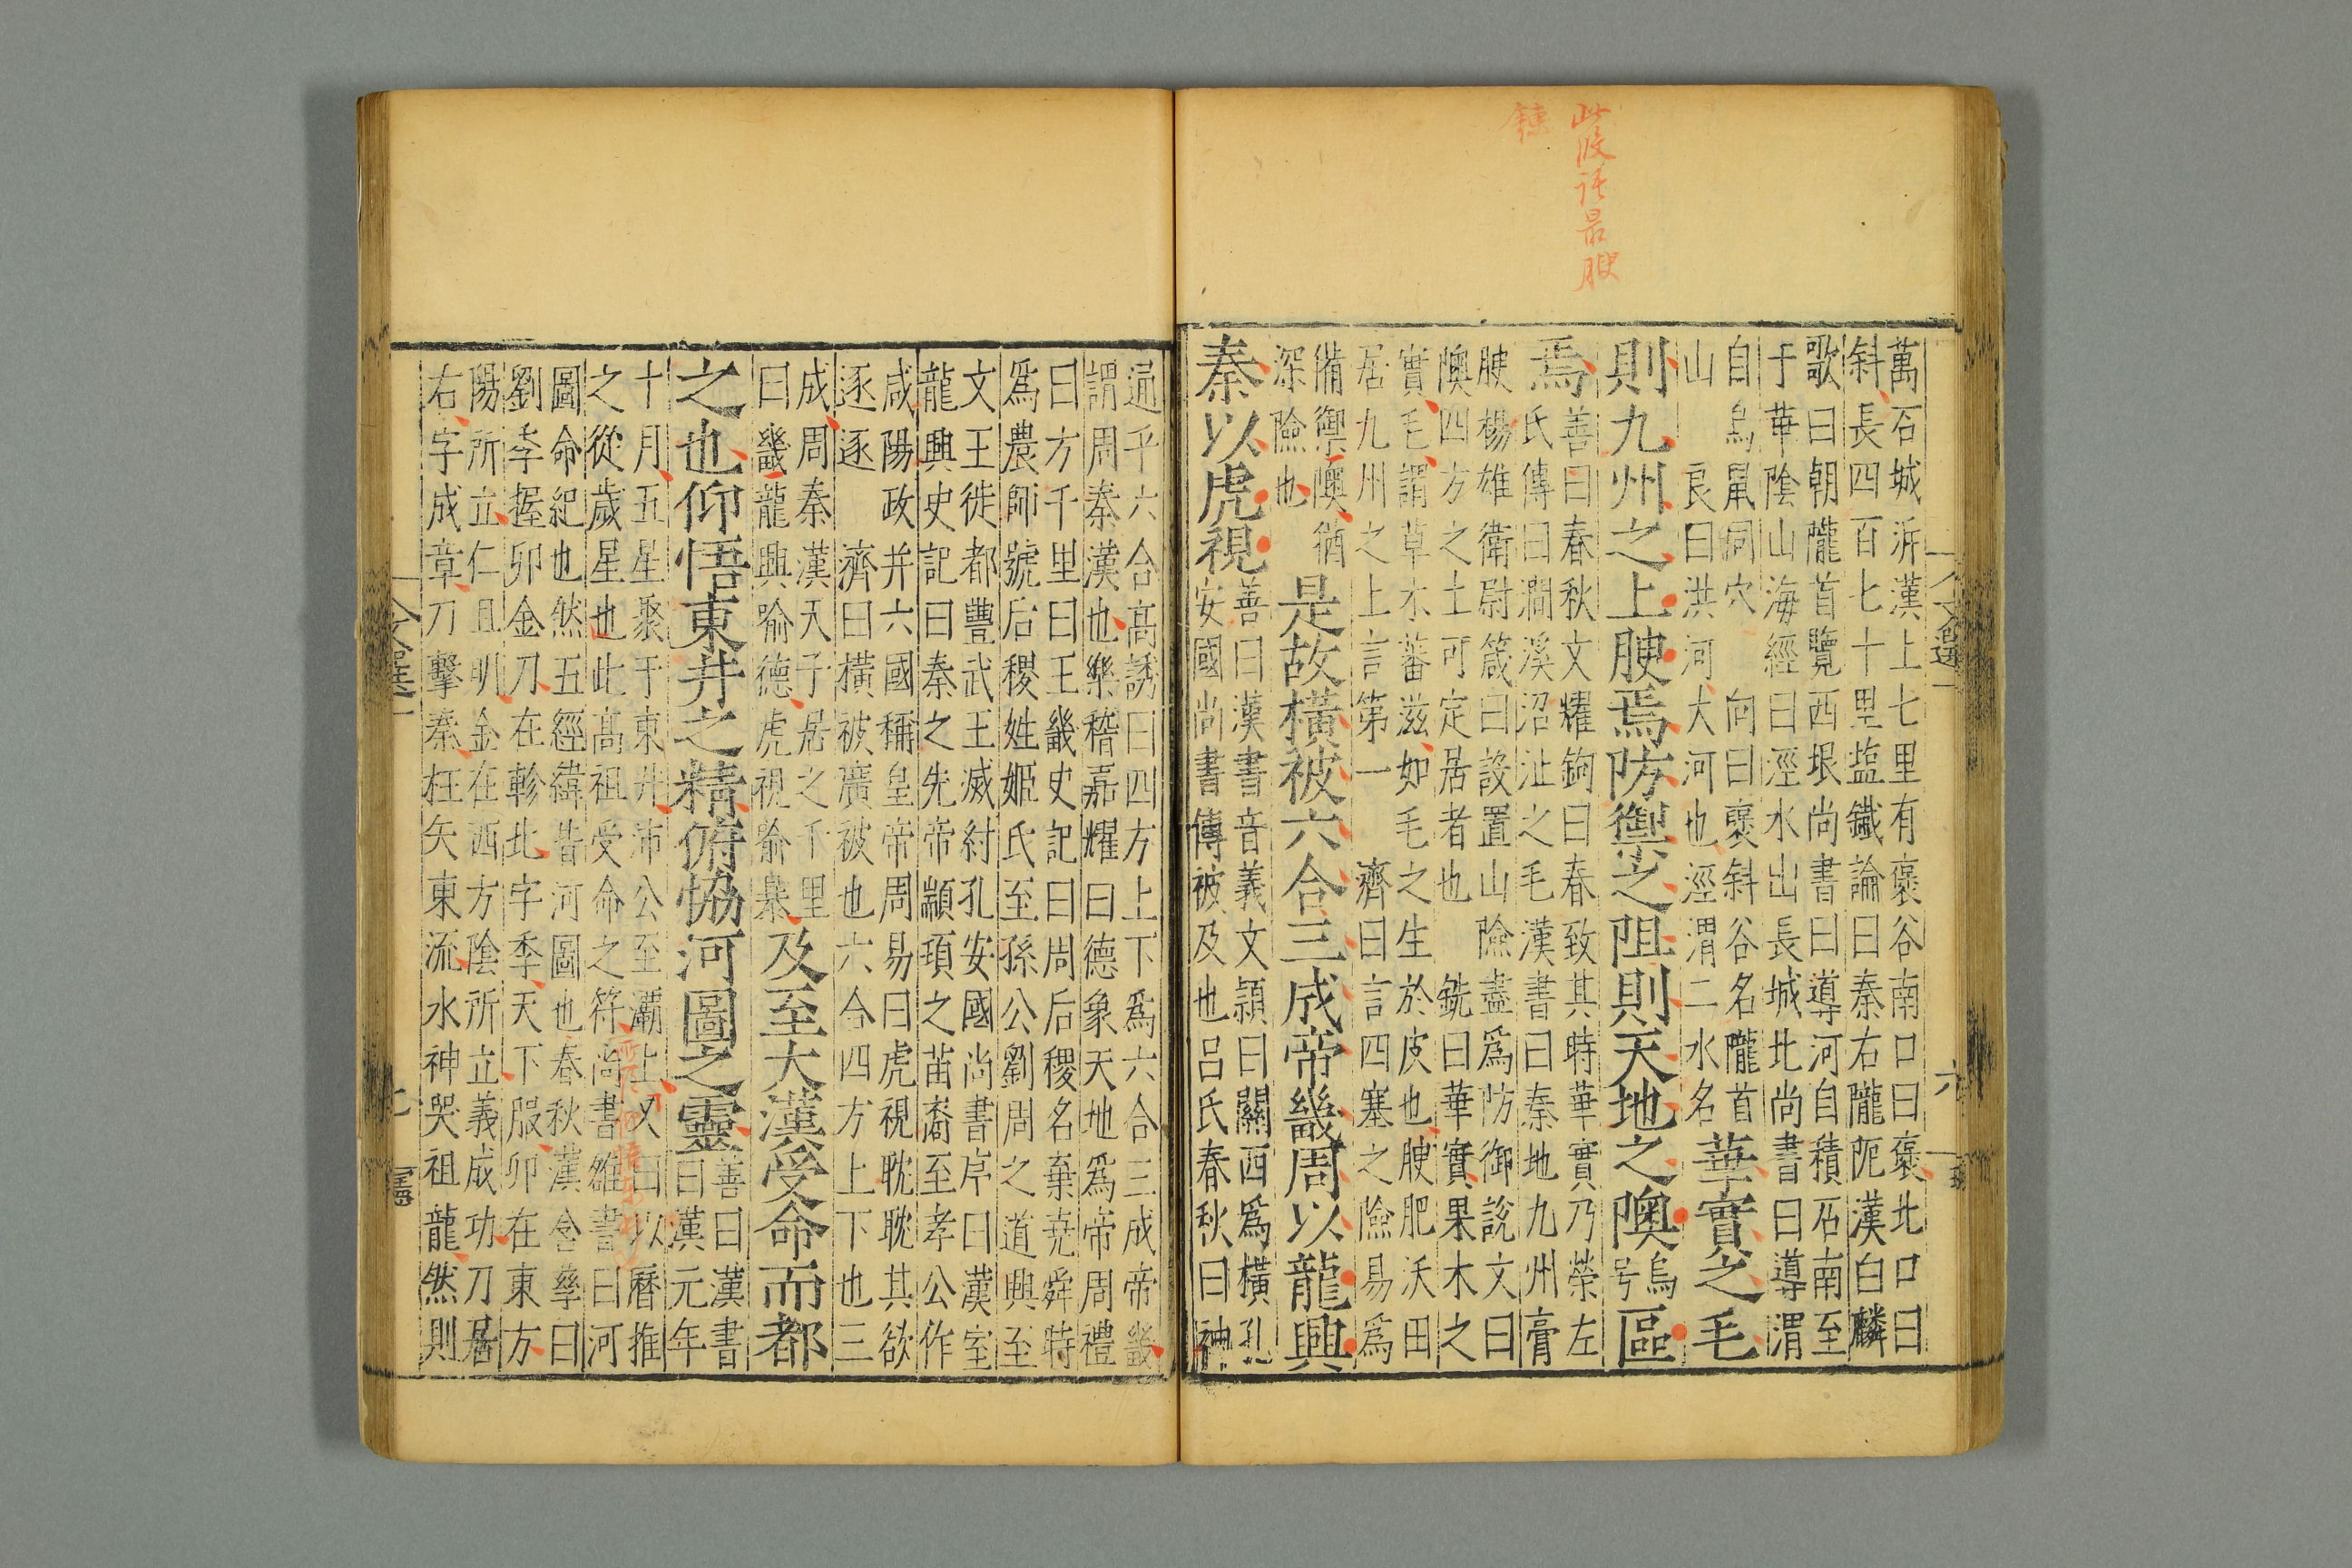 此段語最腴
鍊
文選一
六
萬石城泝漢上七里有褒谷南口曰褒北口曰
斜長四百七十里塩鐵論曰秦右隴阨漢白麟
歌曰朝隴首覽西垠尚書曰導河自積石南至
于華陰山海經曰涇水出長城北尚書曰導渭
自鳥鼠同穴 向曰褒斜谷名隴首
山 良曰洪河大河也涇渭二水名
華實之毛
則九州之上腴焉防禦之阻則天地之隩
烏
号
區
焉
善曰春秋文耀鉤曰春致其時華實乃榮左
氏傳曰澗溪沼沚之毛漢書曰秦地九州膏
腴楊雄衛尉箴曰設置山險盡爲防御說文曰
隩四方之土可定居者也 銑曰華實果木之
實毛謂草木蕃滋如毛之生於皮也腴肥沃田
居九州之上言第一 濟曰言四塞之險易爲
備禦隩猶
深險也
是故橫被六合三成帝畿周以龍興
秦以虎視
善曰漢書音義文頴曰關西爲橫孔
安國尚書傳被及也呂氏春秋曰神
通乎六合高誘曰四方上下爲六合三成帝畿
謂周秦漢也樂稽嘉耀曰德象天地爲帝周禮
曰方千里曰王畿史記曰周后稷名棄堯舜時
爲農師號后稷姓姬氏至孫公劉周之道興至
文王徙都豐武王滅紂孔安國尚書序曰漢室
龍興史記曰秦之先帝顓頊之苗裔至孝公作
咸陽政并六國稱皇帝周易曰虎視眈眈其欲
逐逐 濟曰橫被廣被也六合四方上下也三
成周秦漢天子居之千里
曰畿龍興喻德虎視喻暴
及至大漢受命而都
之也仰悟東井之精俯協河圖之靈
善曰漢書
曰漢元年
十月五星聚于東井沛公至灞上又曰以曆推
之從歲星也此高祖受命之符尚書雒書曰河
圖命紀也然五經緯皆河圖也春秋漢含孳曰
劉季握卯金刀在軫北字季天下服卯在東方
陽所立仁且明金在西方陰所立義成功刀居
右字成章刀擊秦枉矢東流水神哭祖龍然則